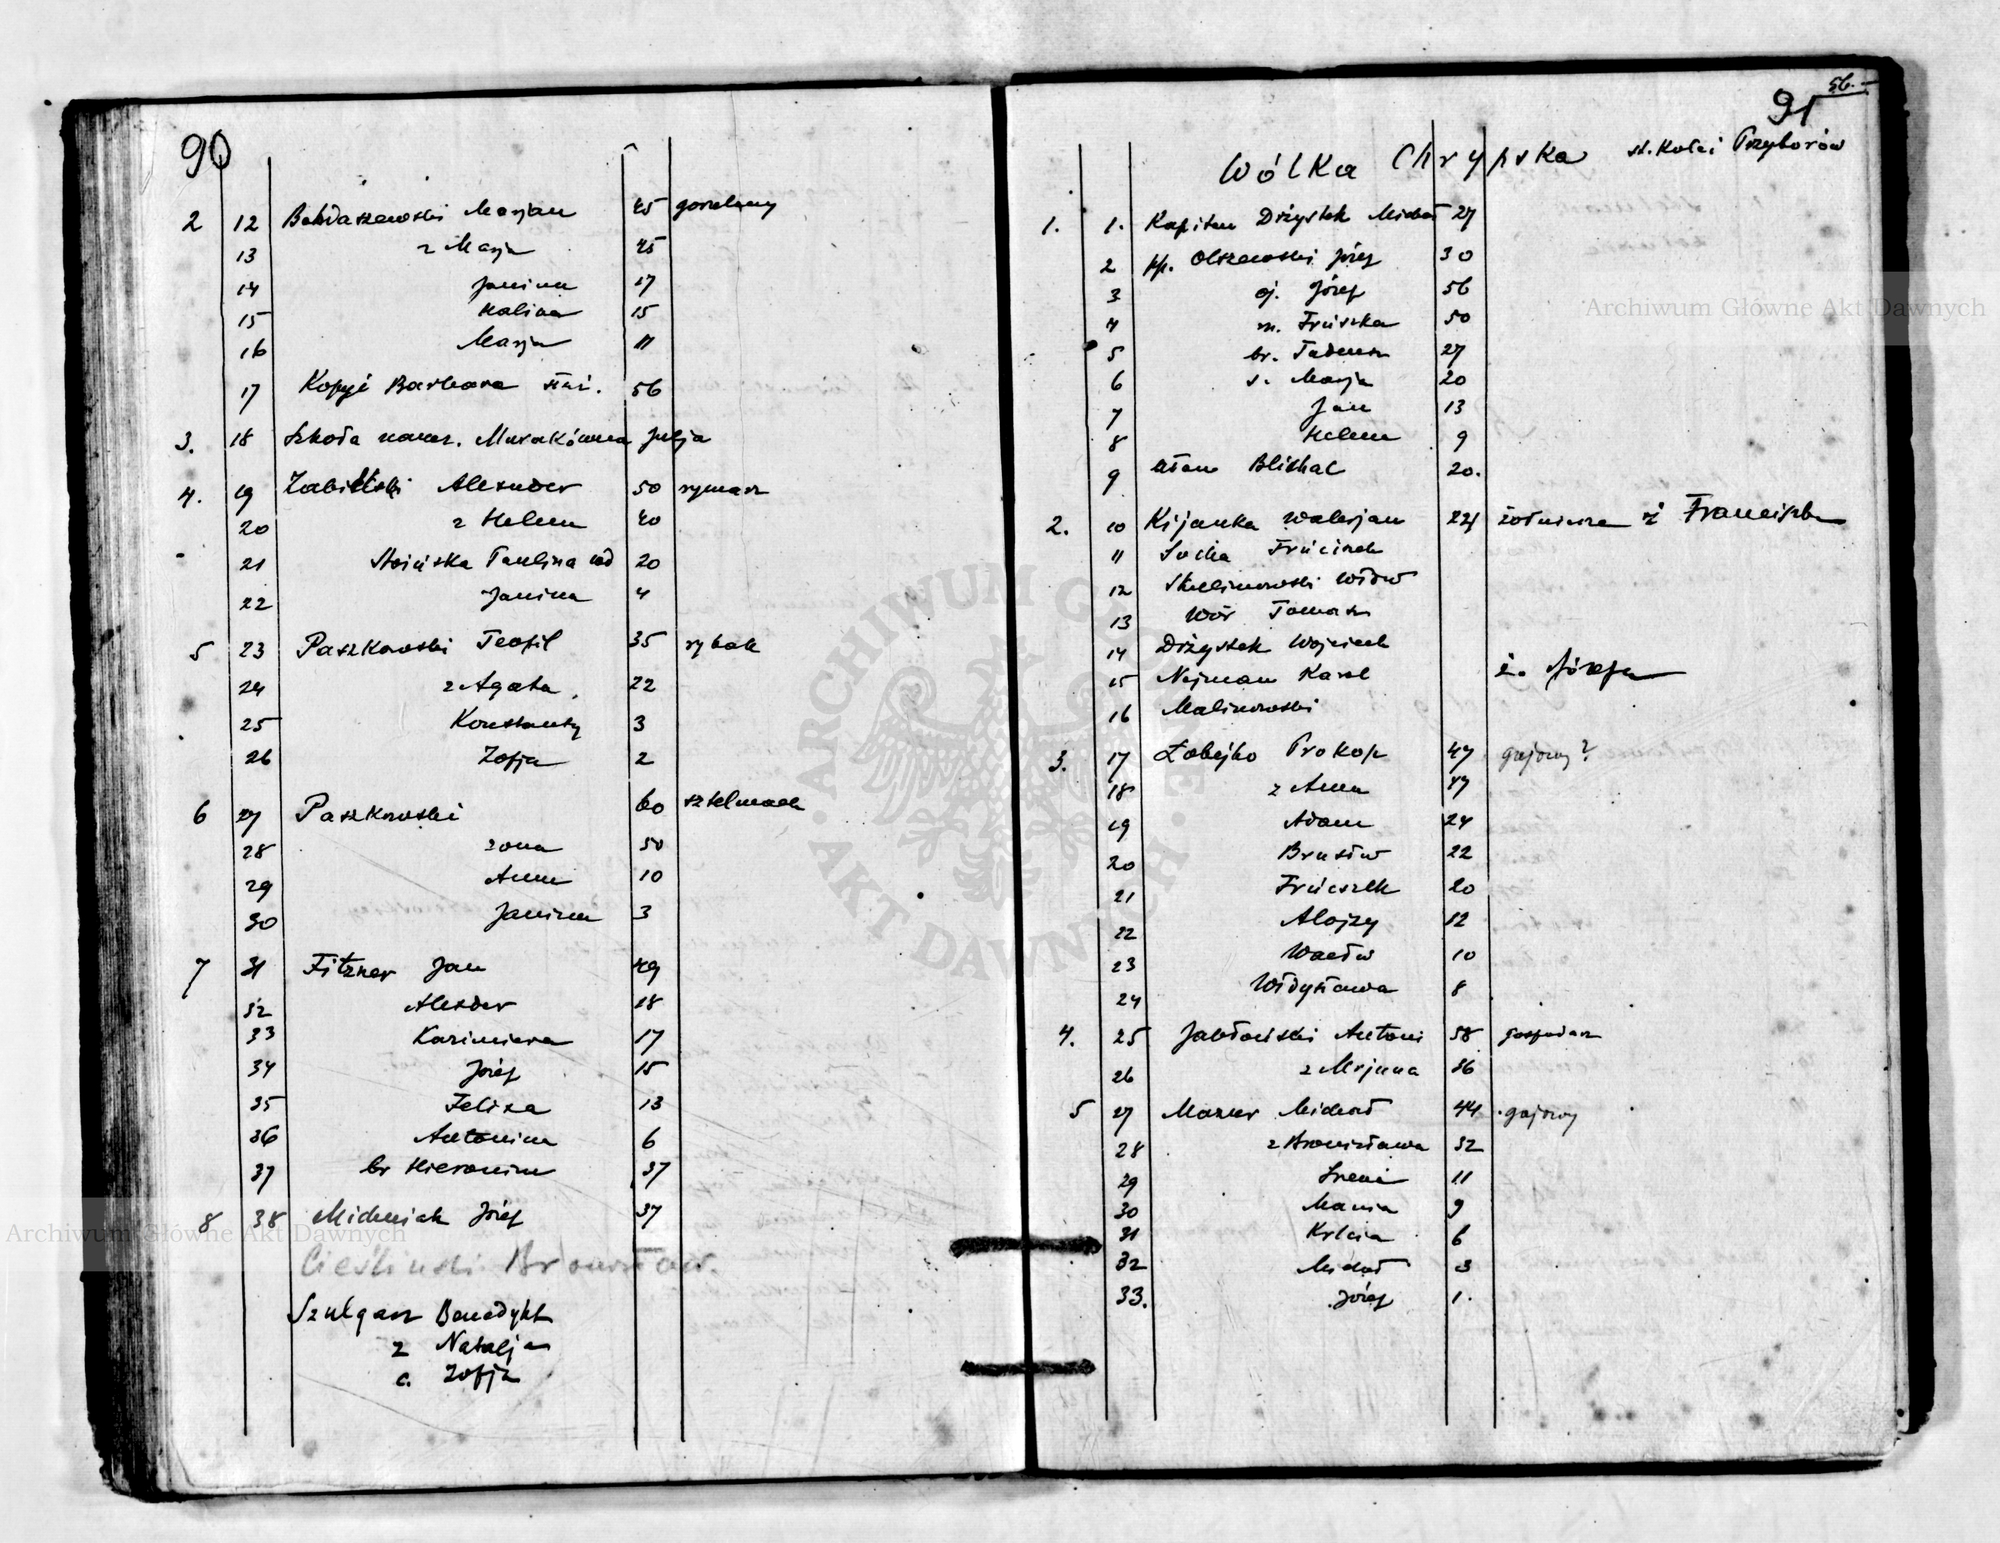 90
2 12 Bohdaszewski Marjan 45 gorzelany
13 z Marja 45
14 Janina 17
15 Halina 15
16 Marja 11
17 Barbara 56
3. 18 Szkoła naucz. Murakówna Julja
4. 19 Alexnder 50 rymarz
20 z Helena 40
21 Paulina 20
22 Janina 4
5 23 Paszkowski Teofil 35 rybak
24 z Agata. 22
25 Konstanty 3
26 Zofja 2
6 27 Paszkowski 60 sztelmach
28 żona 50
29 Anna 10
30 Janina 3
7 31 Fitzner Jan 49
32 Alexder 18
33 Kazimiera 17
34 Józef 15
35 Felixa 13
36 Antonina 6
37 br Hieronim 37
8 38 Michniak Józef 37
Cieśliński Bronisław.
Szulgacz Benedykt
z Natalja
c. Zofja
56.-
91
Wólka Chrypska st. Kolei Przyborów
1. 1. Kapitan Dżystek Michał 27
2 pp. Olszewski Józef 30
3 oj. Józef 56
4 m. Frciszka 50
5 br. Tadeusz 27
6 s. Marja 20
7 Jan 13
8 Helena 9
9 ułan Blichal 20.
2. 10 Kijanka Walerjan 22 żołnierze ż Franciszka
11 Socha Frciszek
12 Skulimowski Włdw
13 Wór Tomasz
14 Dżystek Wojciech
15 Najman Karol ż. Józefa
16 Malinowski
3. 17 Łobejko Prokop 47 gajowy?
18 z Anna 47
19 Adam 24
20 Brusłw 22
21 Frciszek 20
22 Alojzy 12
23 Wacłw 10
24 Włdysława 8
4. 25 Jabłoński Antoni 58 gospodarz
26 z Mrjnna 36
5 27 Mazur Michał 44 gajowy
28 z Bronisława 32
29 Irena 11
30 Mania 9
31 6
32 Michał 3
33. Józef 1.
ARCHIWUM GŁÓWNE AKT DAWNYCH
Archiwum Główne Akt Dawnych
Archiwum Główne Akt Dawnych